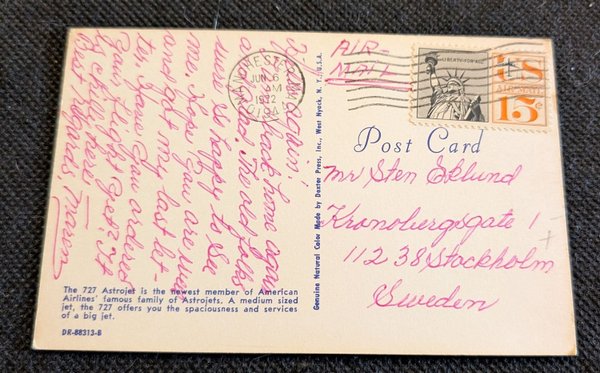 Hi again!
back home again
and had The old folks
were so happy to see
me. Hope you are well
and got my last let-
ter, Have you ordered
your flight yet? It
is chilly here!
Best regards
MANCHESTER
JUN 6
AM
1972
AIR-
MAIL
LIBERTY FOR ALL
US
AIR MAIL
15¢
Post Card
Mr Sten Eklund
Kronobergsgate 1
112 38 Stockholm
Sweden
Genuine Natural Color Made by Dexter Press, Inc., West Nyack, N. Y., U.S.A.
The 727 Astrojet is the newest member of American
Airlines' famous family of Astrojets. A medium sized
jet, the 727 offers you the spaciousness and services
of a big jet.
DR-88313-B